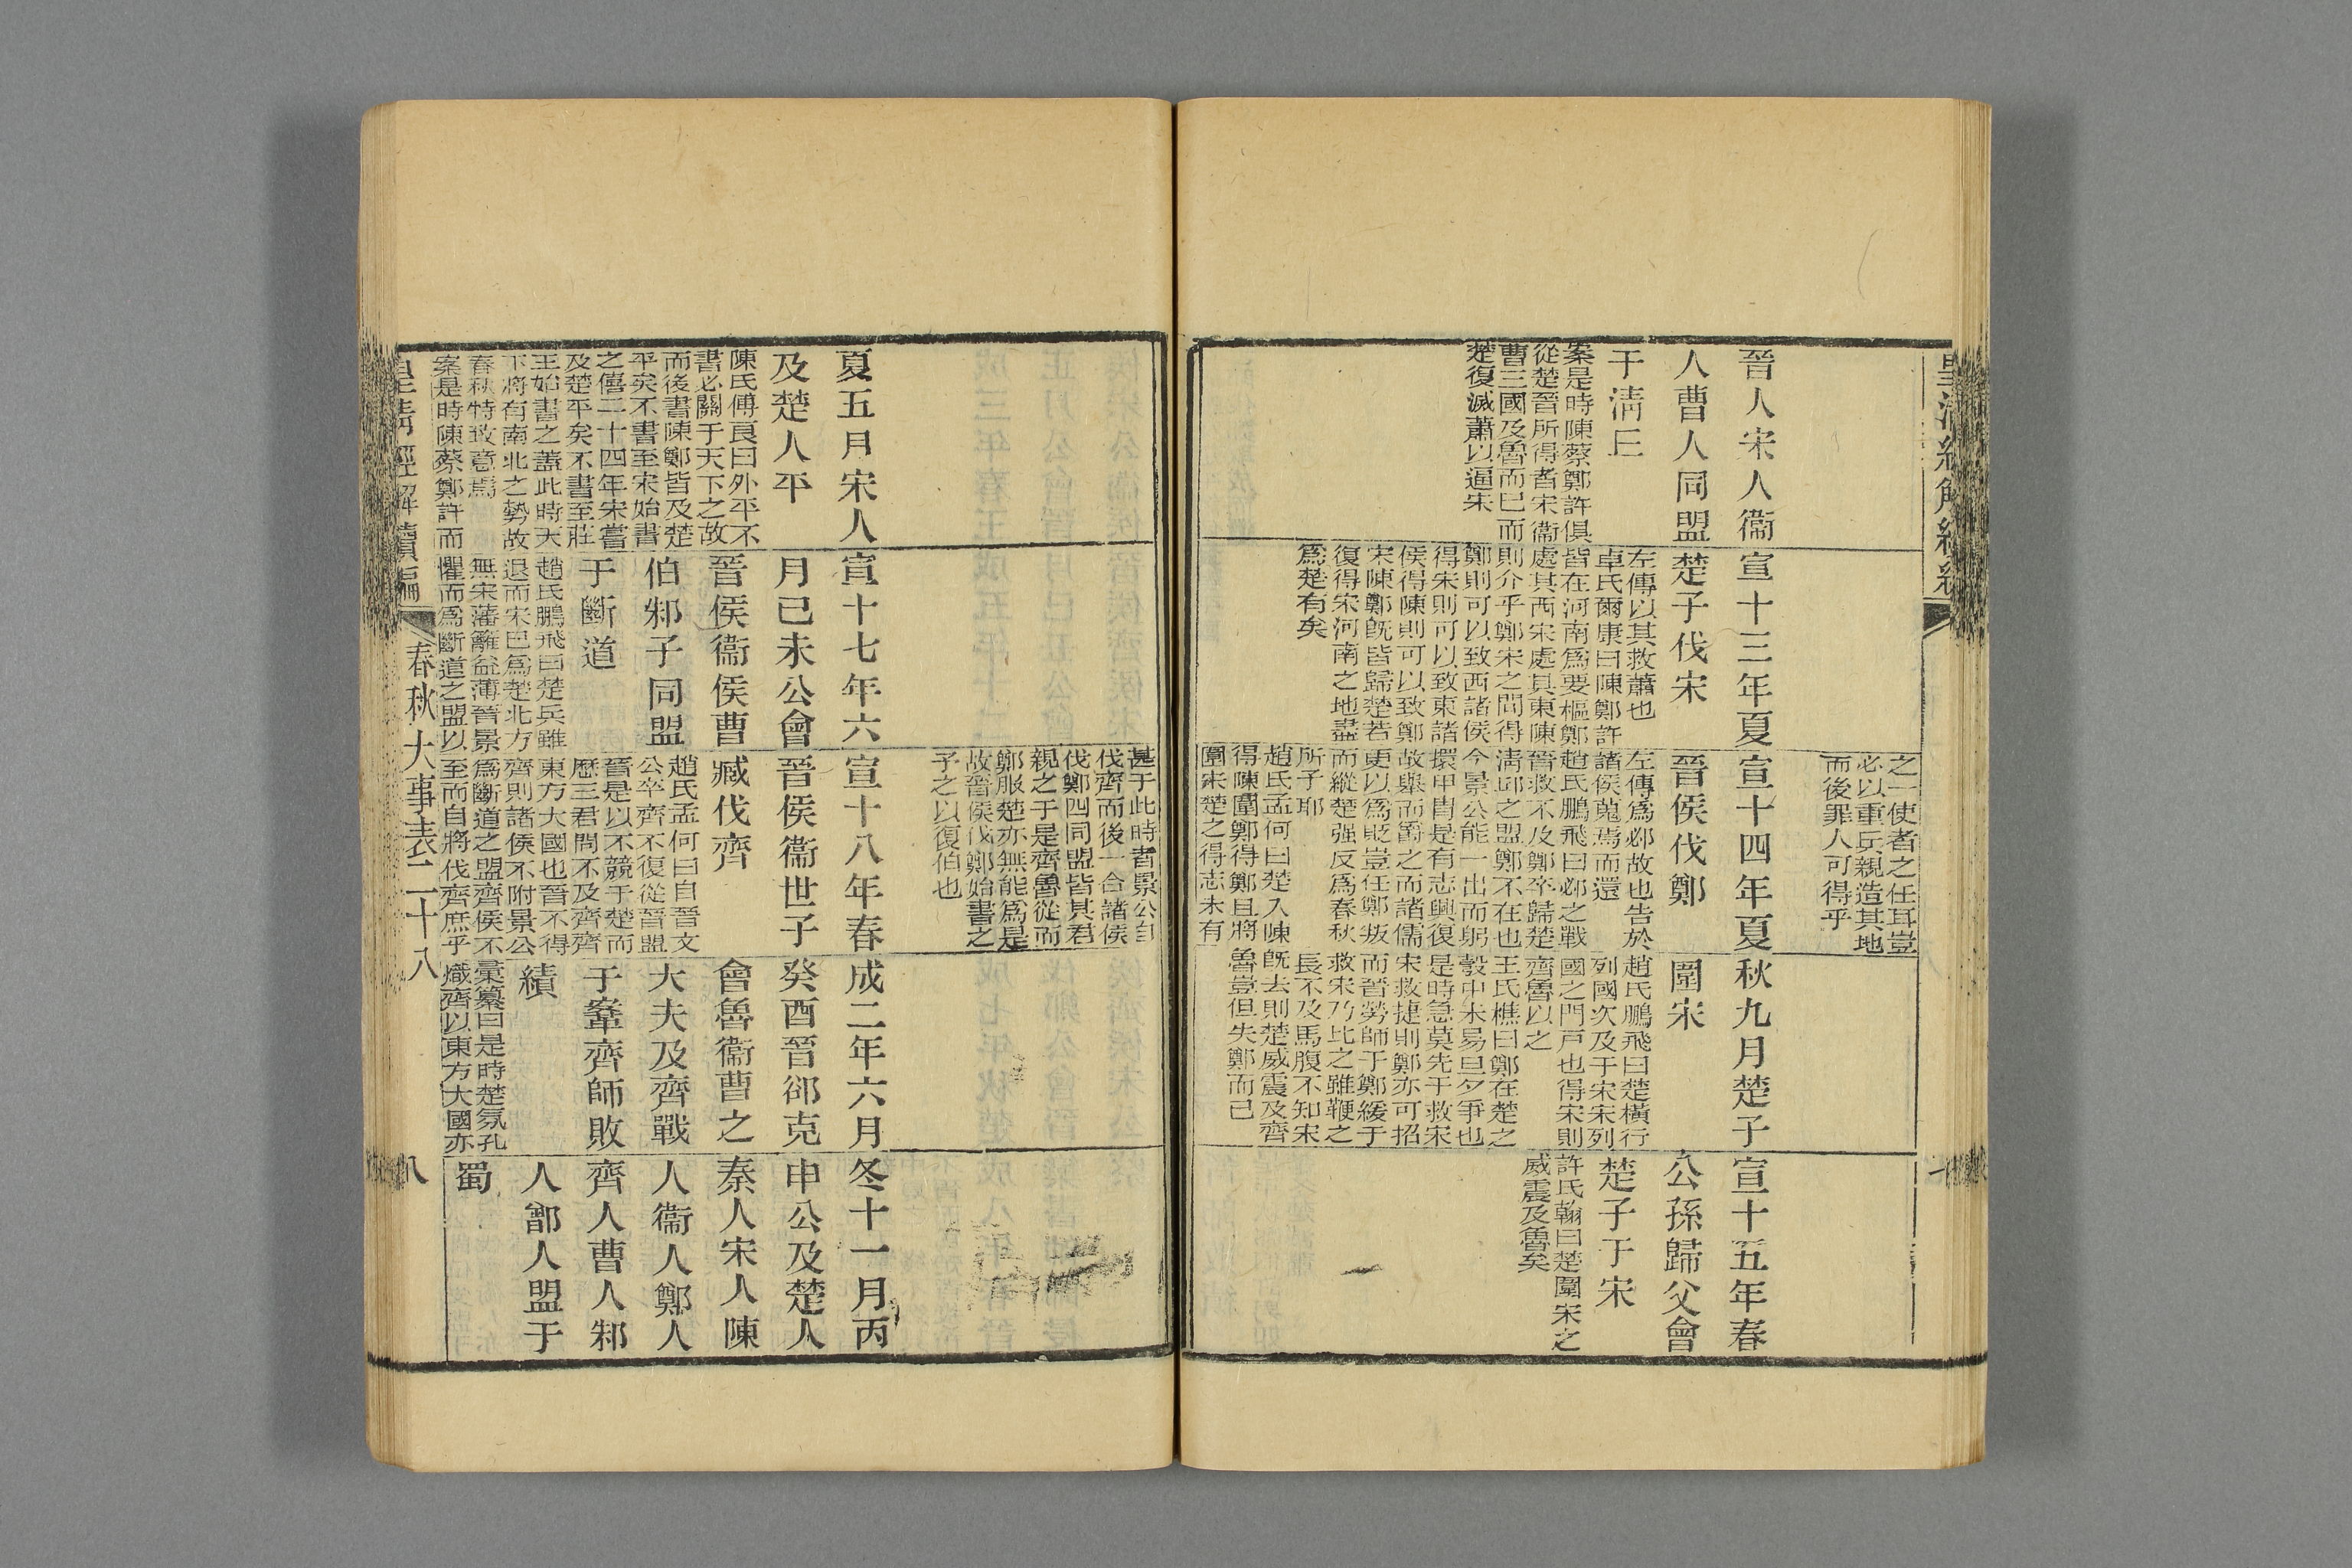 晉人宋人衞
人曹人同盟
于淸丘
案是時陳蔡鄭許俱
從楚晉所得者宋衞
曹三國及魯而已而
楚復滅蕭以逼宋
宣十三年夏
楚子伐宋
左傳以其救蕭也
卓氏爾康曰陳鄭許
皆在河南爲要樞鄭
處其西宋處其東陳
則介乎鄭宋之間得
鄭則可以致西諸侯
得宋則可以致東諸
侯得陳則可以致鄭
宋陳鄭旣皆歸楚若
復得宋河南之地盡
爲楚有矣
之一使者之任耳豈
必以重兵親造其地
而後罪人可得乎
宣十四年夏
晉侯伐鄭
左傳爲邲故也告於
諸侯蒐焉而還
趙氏鵬飛曰邲之戰
晉救不及鄭卒歸楚
淸邱之盟鄭不在也
今景公能一出而躬
擐甲冑是有志興復
故舉而爵之而諸儒
更以爲貶豈任鄭叛
而縱楚强反爲春秋
所予耶
趙氏孟何曰楚入陳
得陳圍鄭得鄭且將
圍宋楚之得志未有
秋九月楚子
圍宋
趙氏鵬飛曰楚橫行
列國次及于宋宋列
國之門戶也得宋則
齊魯以之
王氏樵曰鄭在楚之
彀中未易旦夕爭也
是時急莫先于救宋
宋救捷則鄭亦可招
而晉勞師于鄭緩于
救宋乃比之雖鞭之
長不及馬腹不知宋
旣去則楚威震及齊
魯豈但失鄭而已
宣十五年春
公孫歸父會
楚子于宋
許氏翰曰楚圍宋之
威震及魯矣
夏五月宋人
及楚人平
陳氏傅良曰外平不
書必關于天下之故
而後書陳鄭皆及楚
平矣不書至宋始書
之僖二十四年宋嘗
及楚平矣不書至莊
王始書之蓋此時天
下將有南北之勢故
春秋特致意焉
案是時陳蔡鄭許而
宣十七年六
月己未公會
晉侯衞侯曹
伯邾子同盟
于斷道
趙氏鵬飛曰楚兵雖
退而宋已爲楚北方
無宋藩籬益薄晉景
懼而爲斷道之盟以
甚于此時者景公自
伐齊而後一合諸侯
伐鄭四同盟皆其君
親之于是齊魯從而
鄭服楚亦無能爲是
故晉侯伐鄭始書之
予之以復伯也
宣十八年春
晉侯衞世子
臧伐齊
趙氏孟何曰自晉文
公卒齊不復從晉盟
晉是以不競于楚而
歷三君問不及齊齊
東方大國也晉不得
齊則諸侯不附景公
爲斷道之盟齊侯不
至而自將伐齊庶乎
成二年六月
癸酉晉郤克
會魯衞曹之
大夫及齊戰
于鞌齊師敗
績
彙纂曰是時楚氛孔
熾齊以東方大國亦
冬十一月丙
申公及楚人
秦人宋人陳
人衞人鄭人
齊人曹人邾
人鄫人盟于
蜀
皇淸經解續編
春秋大事表二十八
八